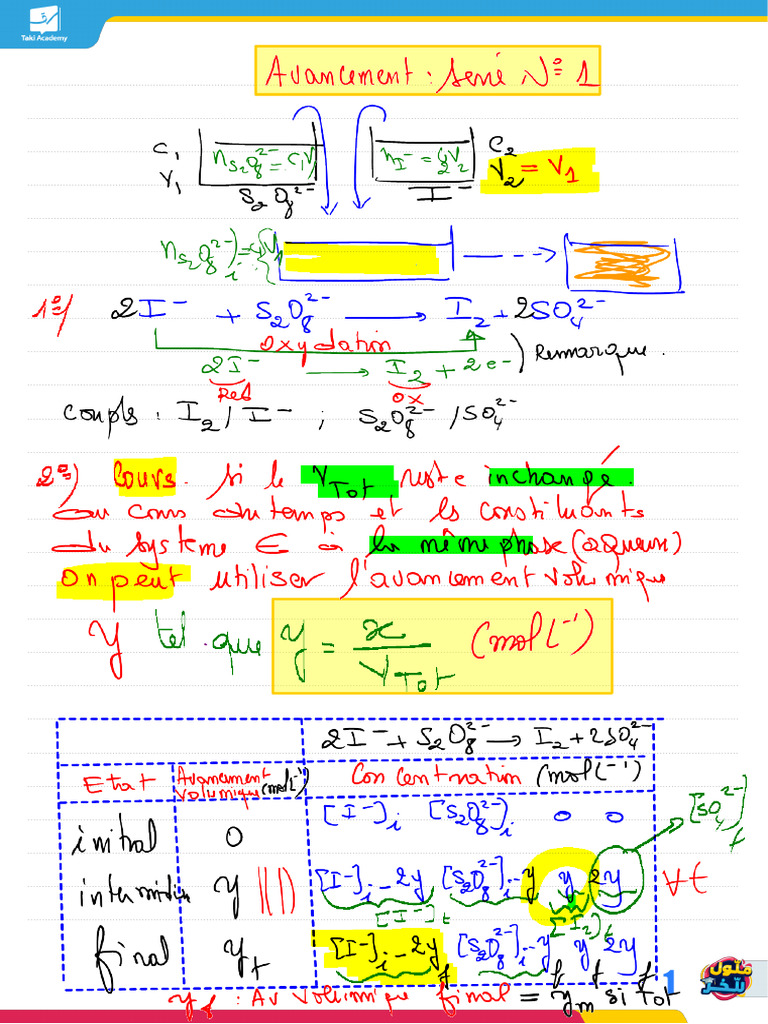 Taki Academy
Avancement : Serie N° 1
C₁
V₁
n S₂O₈²⁻ = C₁V₁
S₂O₈²⁻
n I⁻ = C₂V₂
I⁻
C₂
V₂ = V₁
n S₂O₈²⁻)i = C₁V₁
1°/ 2I⁻ + S₂O₈²⁻ → I₂ + 2SO₄²⁻
oxydation
2I⁻ → I₂ + 2e⁻ ) Remarque.
Red
OX
Coupls : I₂ / I⁻ ; S₂O₈²⁻ / SO₄²⁻
2°) Cours. si le V Tot reste inchangé
au cours du temps et les constituants
du systeme ∈ à la même phase (aqueux)
on peut utiliser l'avancement volumique
y tel que y = x / V Tot (mol L⁻¹)
2I⁻ + S₂O₈²⁻ → I₂ + 2SO₄²⁻
Etat Avancement volumique (mol L⁻¹) Concentration (mol L⁻¹)
initial 0 [I⁻]i [S₂O₈²⁻]i 0 0
[SO₄²⁻]t
y [I⁻]i - 2y [S₂O₈²⁻]i - y y 2y ∀t
[I⁻]t [I₂]t
final yf [I⁻]i - 2yf [S₂O₈²⁻]i - yf yf 2yf
yf : Av volumique final = ym si tot
1